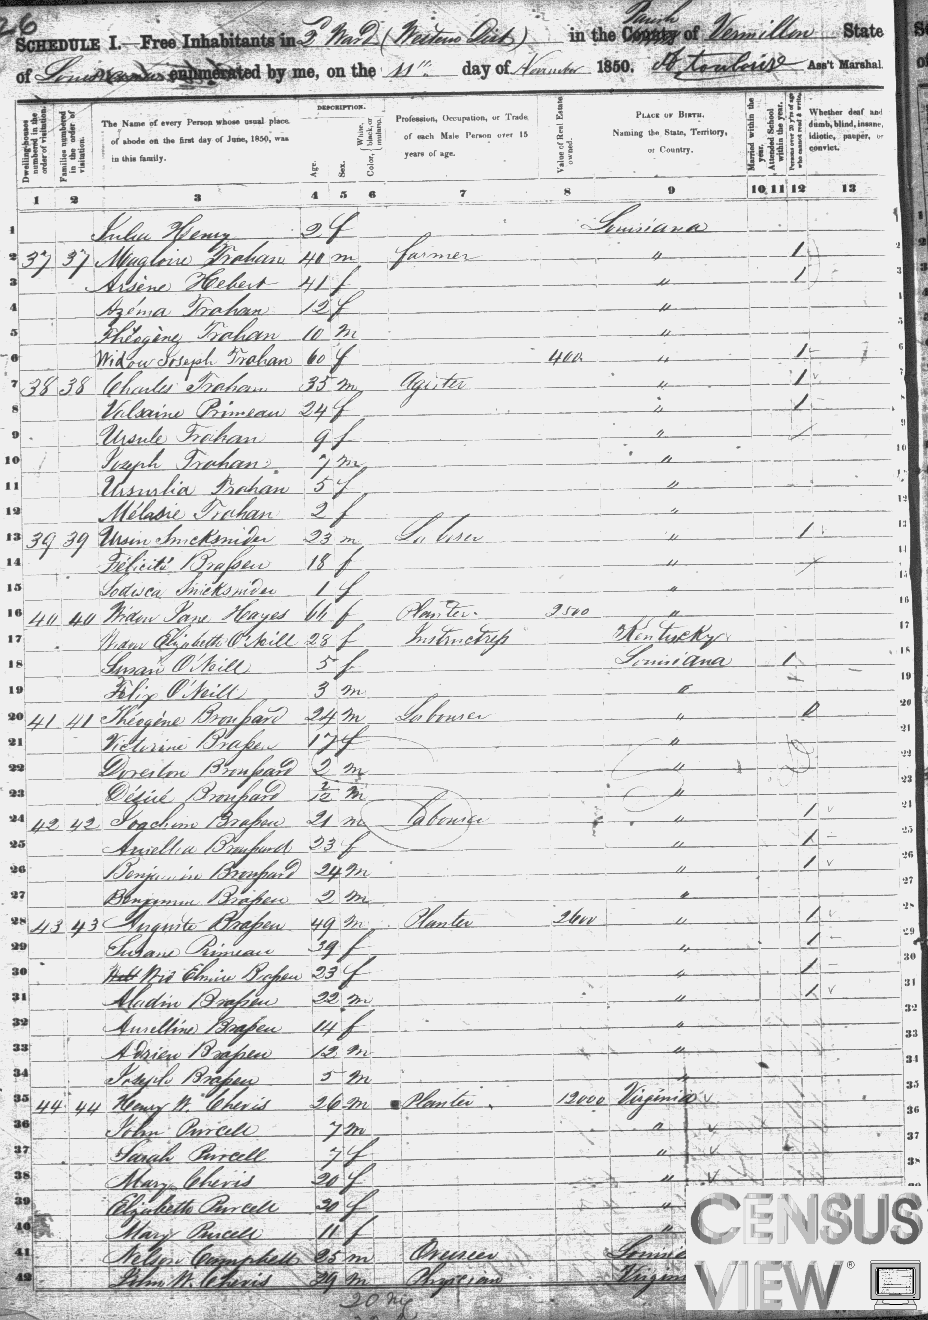 26
SCHEDULE I.—Free Inhabitants in 3 Ward (Western Dist) in the Parish County of Vermillon State
of Louisiana enumerated by me, on the 11th day of November 1850. Ass't Marshal.
Dwelling-houses numbered in the order of visitation.
Families numbered in the order of visitation.
The Name of every Person whose usual place of abode on the first day of June, 1850, was in this family.
DESCRIPTION.
Age.
Sex.
Color, White, black, or mulatto.
Profession, Occupation, or Trade of each Male Person over 15 years of age.
Value of Real Estate owned.
PLACE OF BIRTH. Naming the State, Territory, or Country.
Married within the year.
Attended School within the year.
Persons over 20 y'rs of age who cannot read & write.
Whether deaf and dumb, blind, insane, idiotic, pauper, or convict.
1 2 3 4 5 6 7 8 9 10 11 12 13
1 Julia Henry 2 f Louisiana
2 37 37 Magloire Trahan 40 m farmer " 1
3 Arsène Hebert 41 f " 1
4 Azéma Trahan 12 f "
5 Théogène Trahan 10 m "
6 Widow Joseph Trahan 60 f 400 " 1
7 38 38 Charles Trahan 35 m Agister " 1
8 Valsaine Primeau 24 f " 1
9 Ursule Trahan 9 f "
10 Joseph Trahan 7 m "
11 Ursurlia Trahan 5 f "
12 Mélasie Trahan 2 f "
13 39 39 Ursin Smicksnider 23 m Laborer " 1
14 Félicité Brassen 18 f "
15 Smicksnider 1 f "
16 40 40 Widow Jane Hayes 61 f Planter 2500 "
17 Widow Elizabeth O'Neill 28 f Instructress Kentucky
18 Susan O'Neill 5 f Louisiana 1
19 Felix O'Neill 3 m "
20 41 41 Théogène Broussard 24 m Labourer "
21 Victorine Brassen 17 f "
22 Broussard 2 m "
23 Désiré Broussard 2/12 m "
24 42 42 Joachim Brassen 21 m Labourer " 1
25 Aurellia Broussard 23 f " 1
26 Benjamin Broussard 24 m " 1
27 Benjamin Brassen 2 m "
28 43 43 Auguste Brassen 49 m Planter 2600 " 1
29 Susane Primeau 39 f " 1
30 Wid Elmire Brassen 23 f " 1
31 Aladin Brassen 22 m " 1
32 Aurelline Brassen 14 f "
33 Adrien Brassen 12 m "
34 Joseph Brassen 5 m "
35 44 44 Henry W. Chevis 26 m Planter 12000 Virginia
36 John Purcell 7 m "
37 Sarah Purcell 7 f "
38 Mary Chevis 20 f "
39 Elizabeth Purcell 30 f "
40 Mary Purcell 11 f "
41 Nelson Campbell 25 m Overseer Louisi
42 John W. Chevis 29 m Physician Virgin
20 m
CENSUS
VIEW®